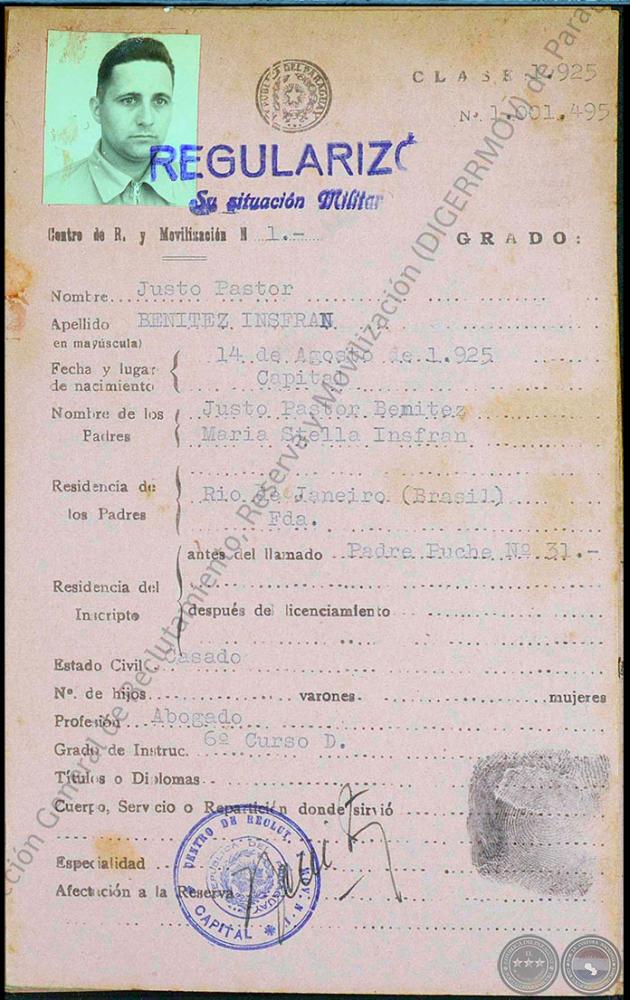 CLASE 1.925
Nº. 1.001.495
REPUBLICA DEL PARAGUAY
REGULARIZÓ
Su situación Militar
Centro de R. y Movilización N 1.-
GRADO:
Nombre Justo Pastor
Apellido BENITEZ INSFRAN
en mayúscula)
Fecha y lugar de nacimiento 14 de Agosto de 1.925
Capital
Nombre de los Padres Justo Pastor Benitez
Maria Stella Insfran
Residencia de los Padres Rio de Janeiro (Brasil)
Fda.
Residencia del Inscripto antes del llamado Padre Puche Nº 31.-
después del licenciamiento
Estado Civil Casado
Nº. de hijos varones mujeres
Profesión Abogado
Grado de Instruc. 6º Curso D.
Títulos o Diplomas
Cuerpo, Servicio o Repartición donde sirvió
Especialidad
Afectación a la Reserva
CENTRO DE RECLUT. Y MOV. N. 1
REPUBLICA DEL PARAGUAY
CAPITAL
Dirección General de Reclutamiento, Reserva y Movilización (DIGERRMOV) de Paraguay